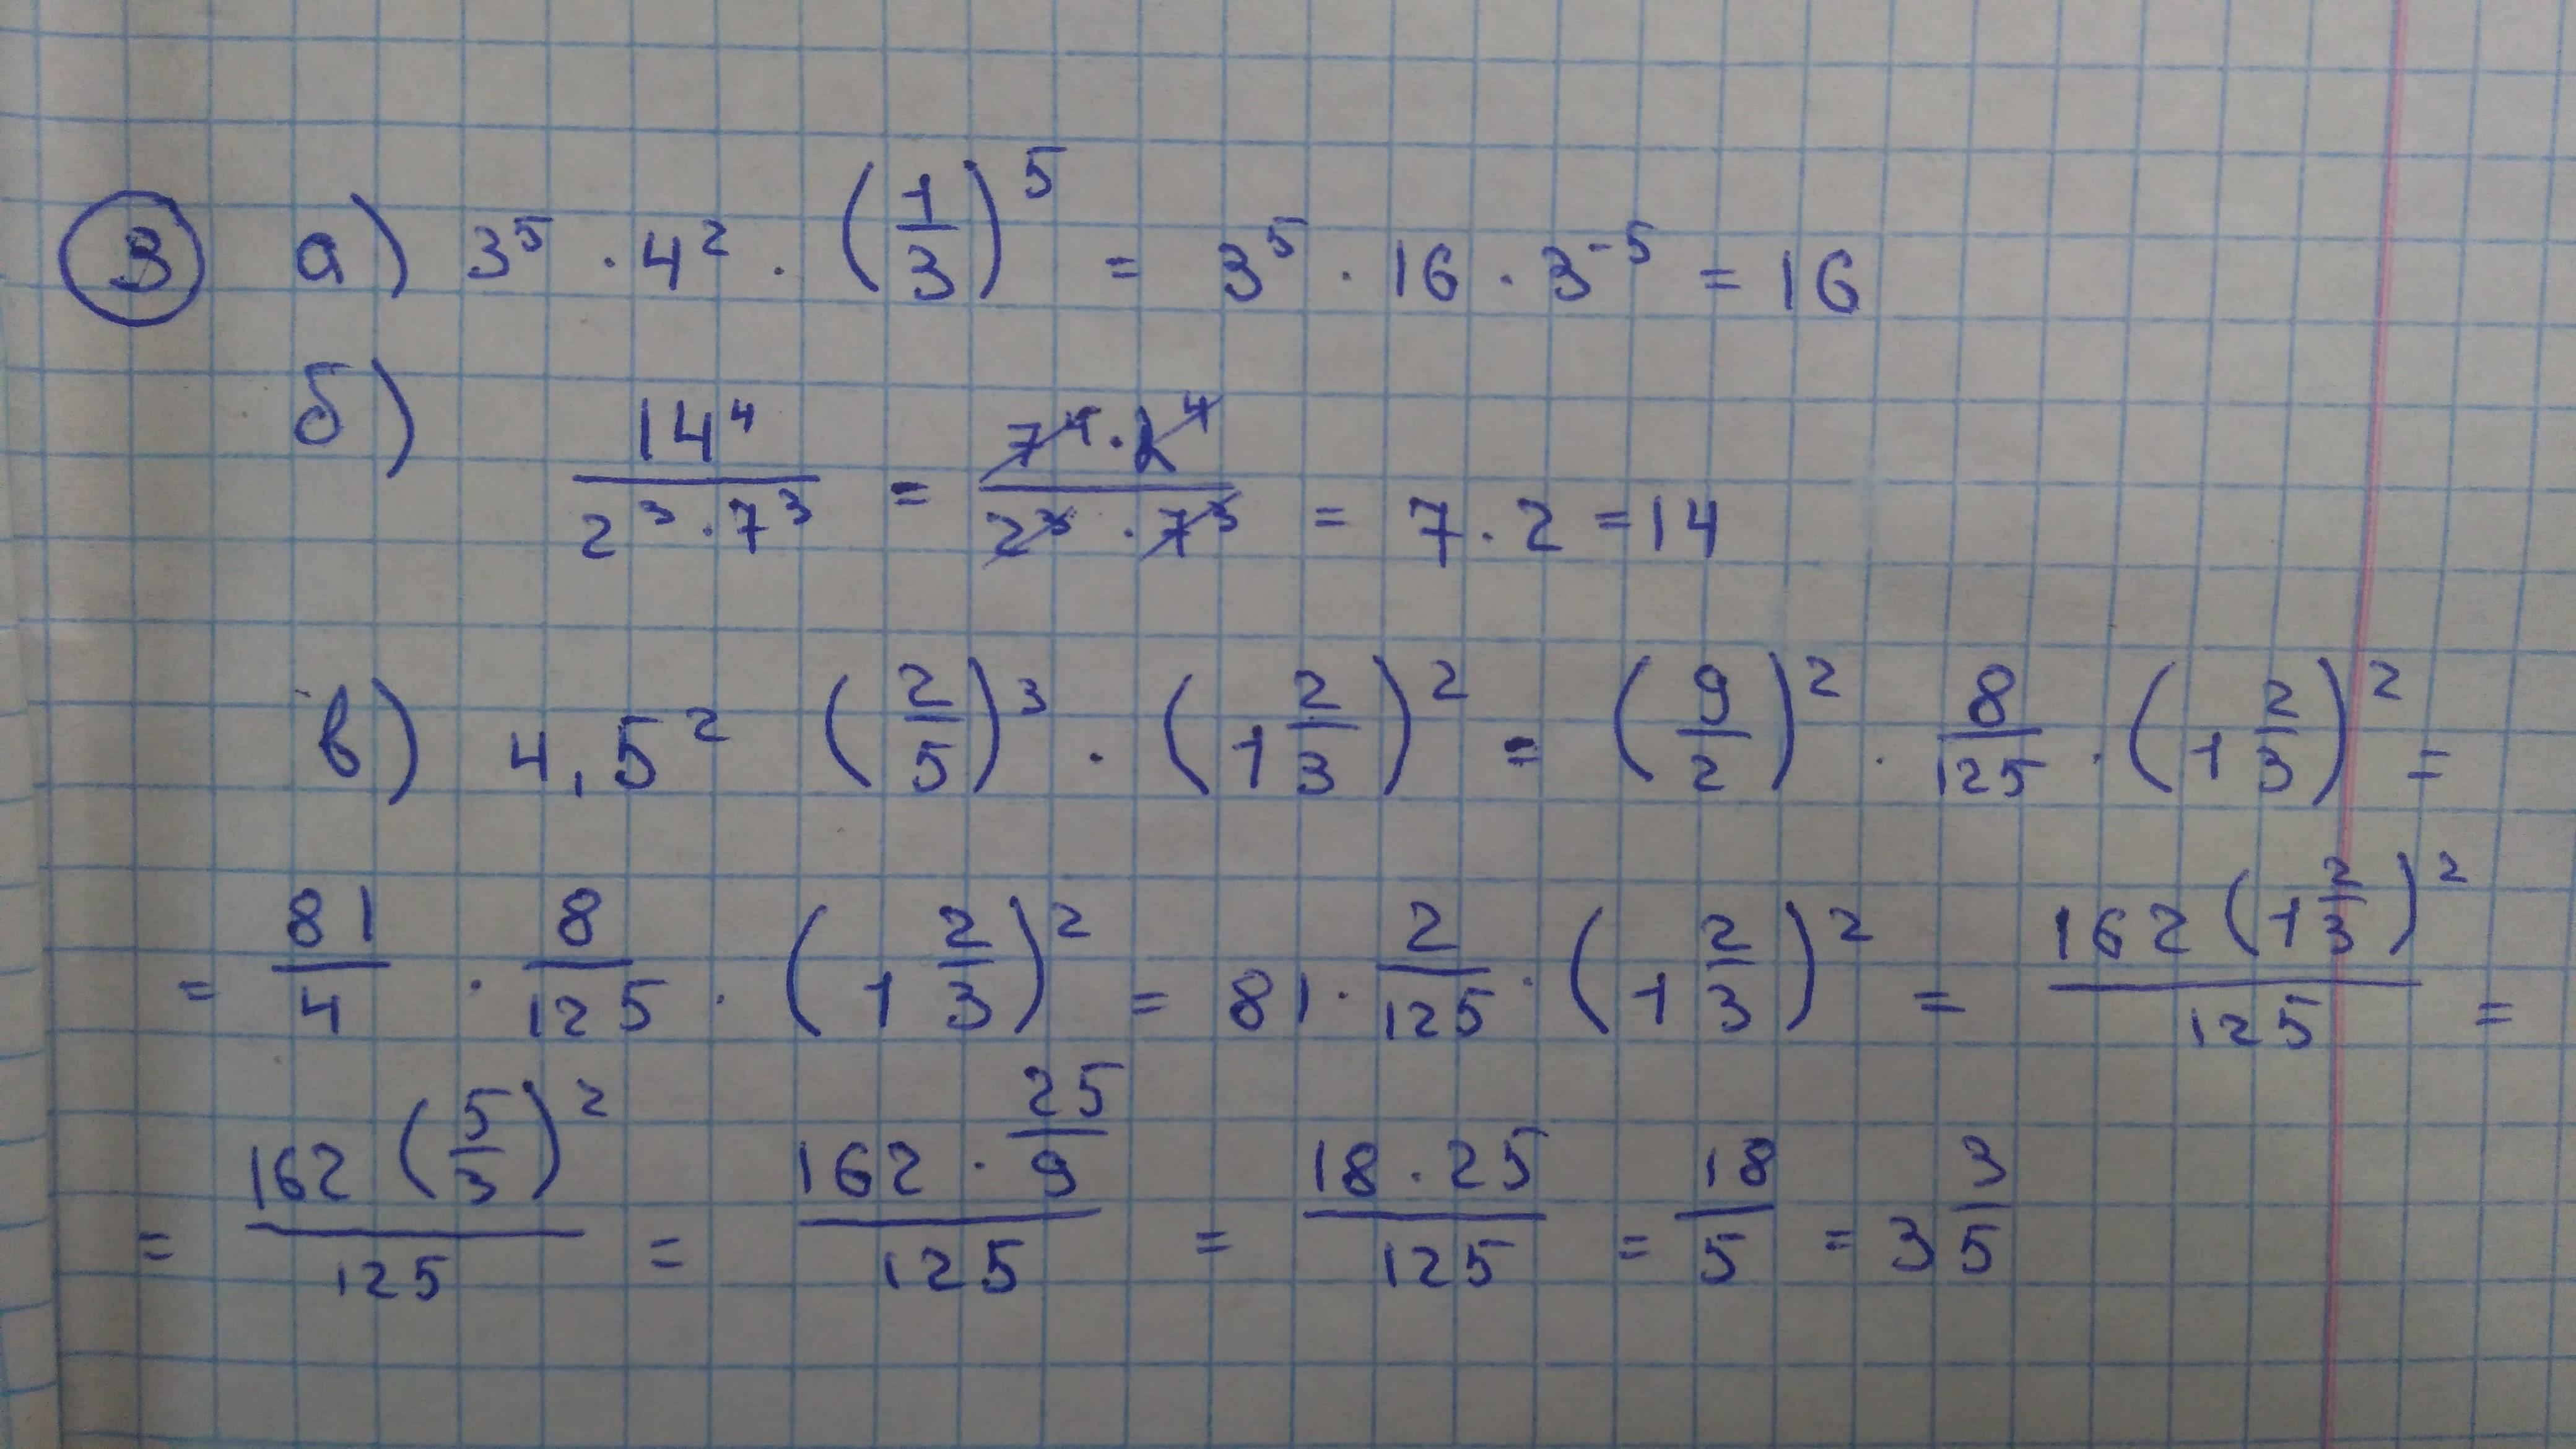 ③ а) 3⁵ · 4² · (1/3)⁵ = 3⁵ · 16 · 3⁻⁵ = 16
б) 14⁴/(2³ · 7³) = (7⁴ · 2⁴)/(2³ · 7³) = 7 · 2 = 14
в) 4,5² (2/5)³ · (1 2/3)² = (9/2)² · 8/125 · (1 2/3)² =
= 81/4 · 8/125 · (1 2/3)² = 81 · 2/125 · (1 2/3)² = 162 (1 2/3)²/125 =
= 162 (5/3)²/125 = (162 · 25/9)/125 = (18 · 25)/125 = 18/5 = 3 3/5